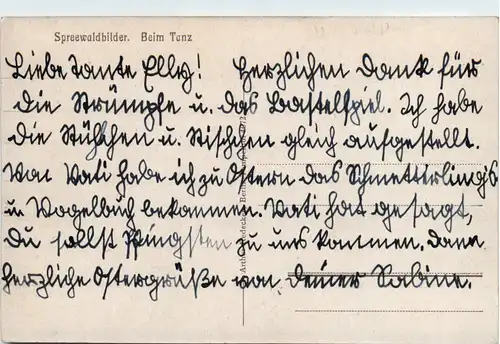 Spreewaldbilder. Beim Tanz
Liebe Tante Elly! Herzlichen Dank für
die Strümpfe u. das Bastelspiel. Ich habe
die Stühlchen u. Tischchen gleich aufgestellt.
Von Vati habe ich zu Ostern das Schmetterling's
u. Vogelbuch bekommen. Vati hat gesagt,
du sollst Pfingsten zu uns kommen. Dann
herzliche Ostergrüße von deiner Sabine.